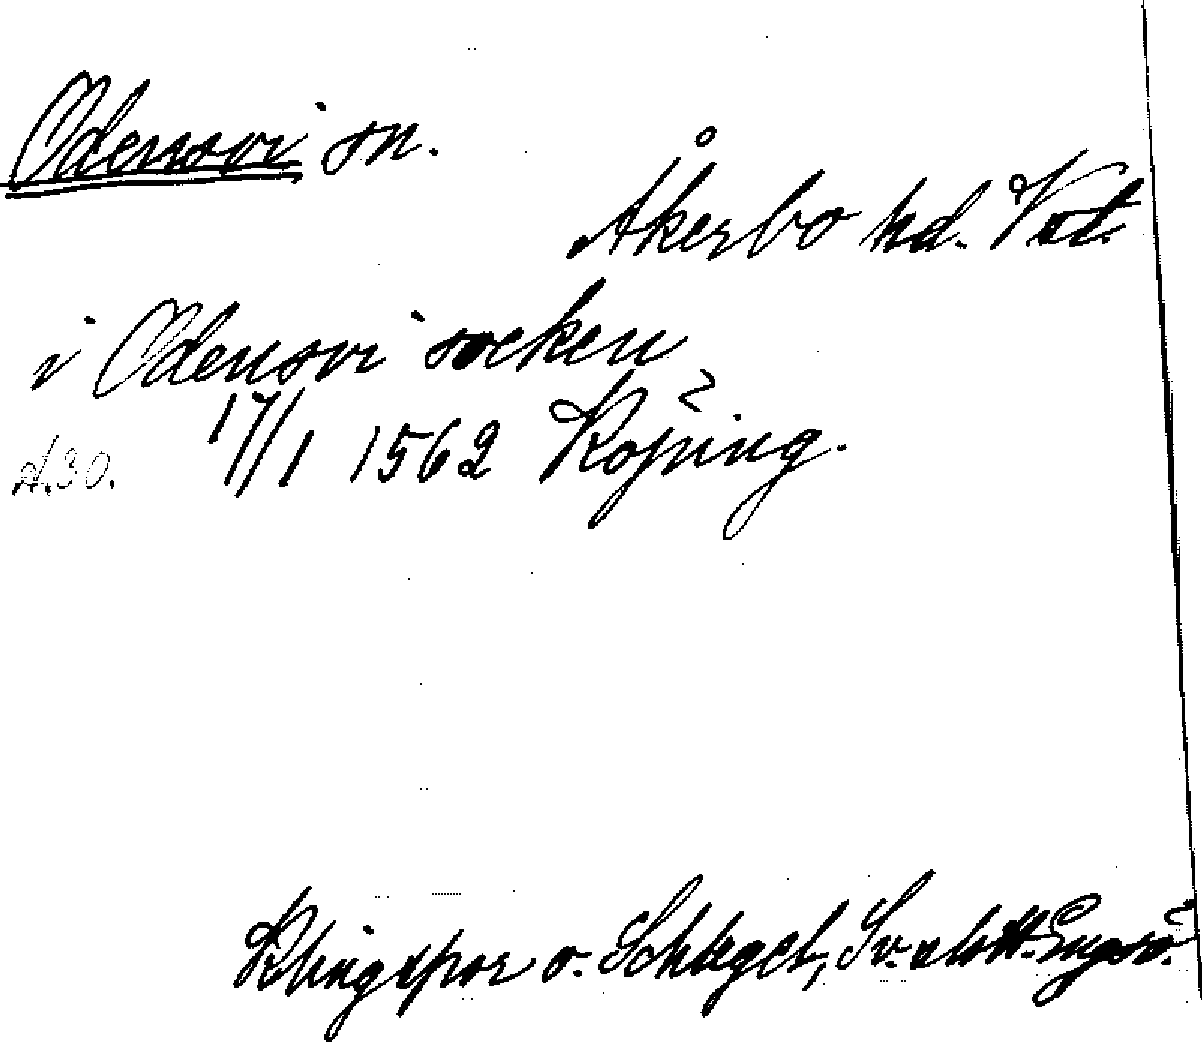 Odensvi sn.
Åkerbo hd. Vstl.
i Odensvi socken
A.30. 17/1 1562 Köping.
Klingspor o. Schlegel, Sv. slott. Engsö.